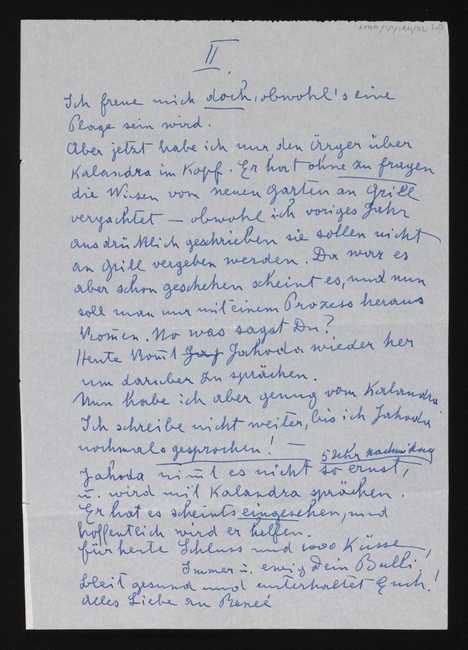 II.
Ich freue mich doch, obwohl's eine
Plage sein wird.
Aber jetzt habe ich nur den örrger über
Kalandra im Kopf. Er hat ohne zu fragen
die Wiesen vom neuen Garten an Grill
verpachtet — obwohl ich voriges Jahr
ausdrüklich geschrieben sie sollen nicht
an Grill vergeben werden. Da war es
aber schon geschehen scheint es, und nun
soll man nur mit einem Prozess heraus
komen. No was sagst Du?
Heute komt Jahoda wieder her
um darüber zu sprächen.
Nun habe ich aber genug vom Kalandra
Ich schreibe nicht weiter, bis ich Jahoda
nochmals gesprochen! —
5 Uhr nachmittag
Jahoda nimt es nicht so ernst,
u. wird mit Kalandra sprächen.
Er hat es scheints eingesehen, und
hoffentlich wird er helfen.
für heute Schluss und 1000 Küsse,
Immer u. ewig Dein Bulli.
bleit gesund und unterhaltet Euch!
Alles Liebe an Reneé